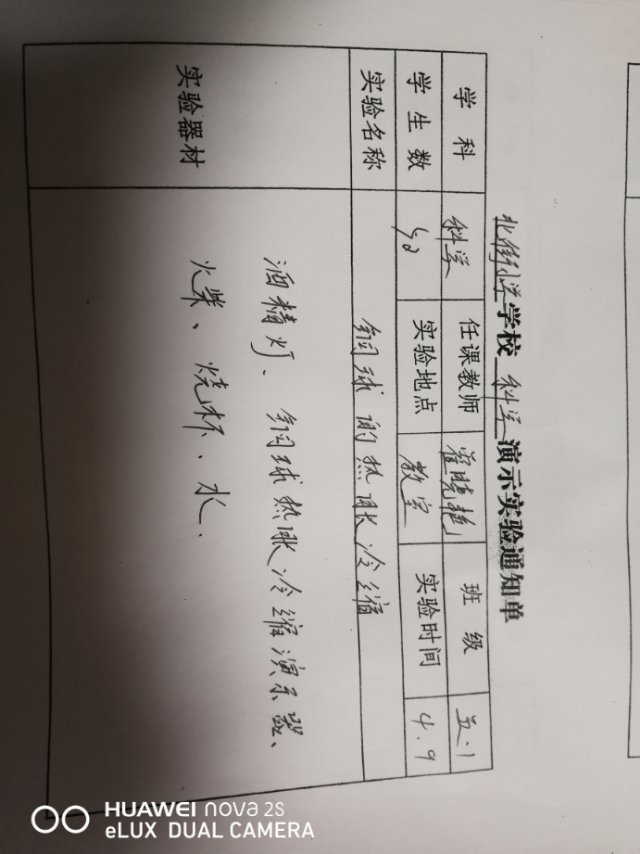 北街小学学校 科学 演示实验通知单
学 科 科学 任课教师 崔晓艳 班 级 五.1
学 生 数 50 实验地点 教室 实验时间 4.9
实验名称 铜球的热胀冷缩
实验器材 酒精灯、铜球热胀冷缩演示器、
火柴、烧杯、水.
HUAWEI nova 2s
eLUX DUAL CAMERA